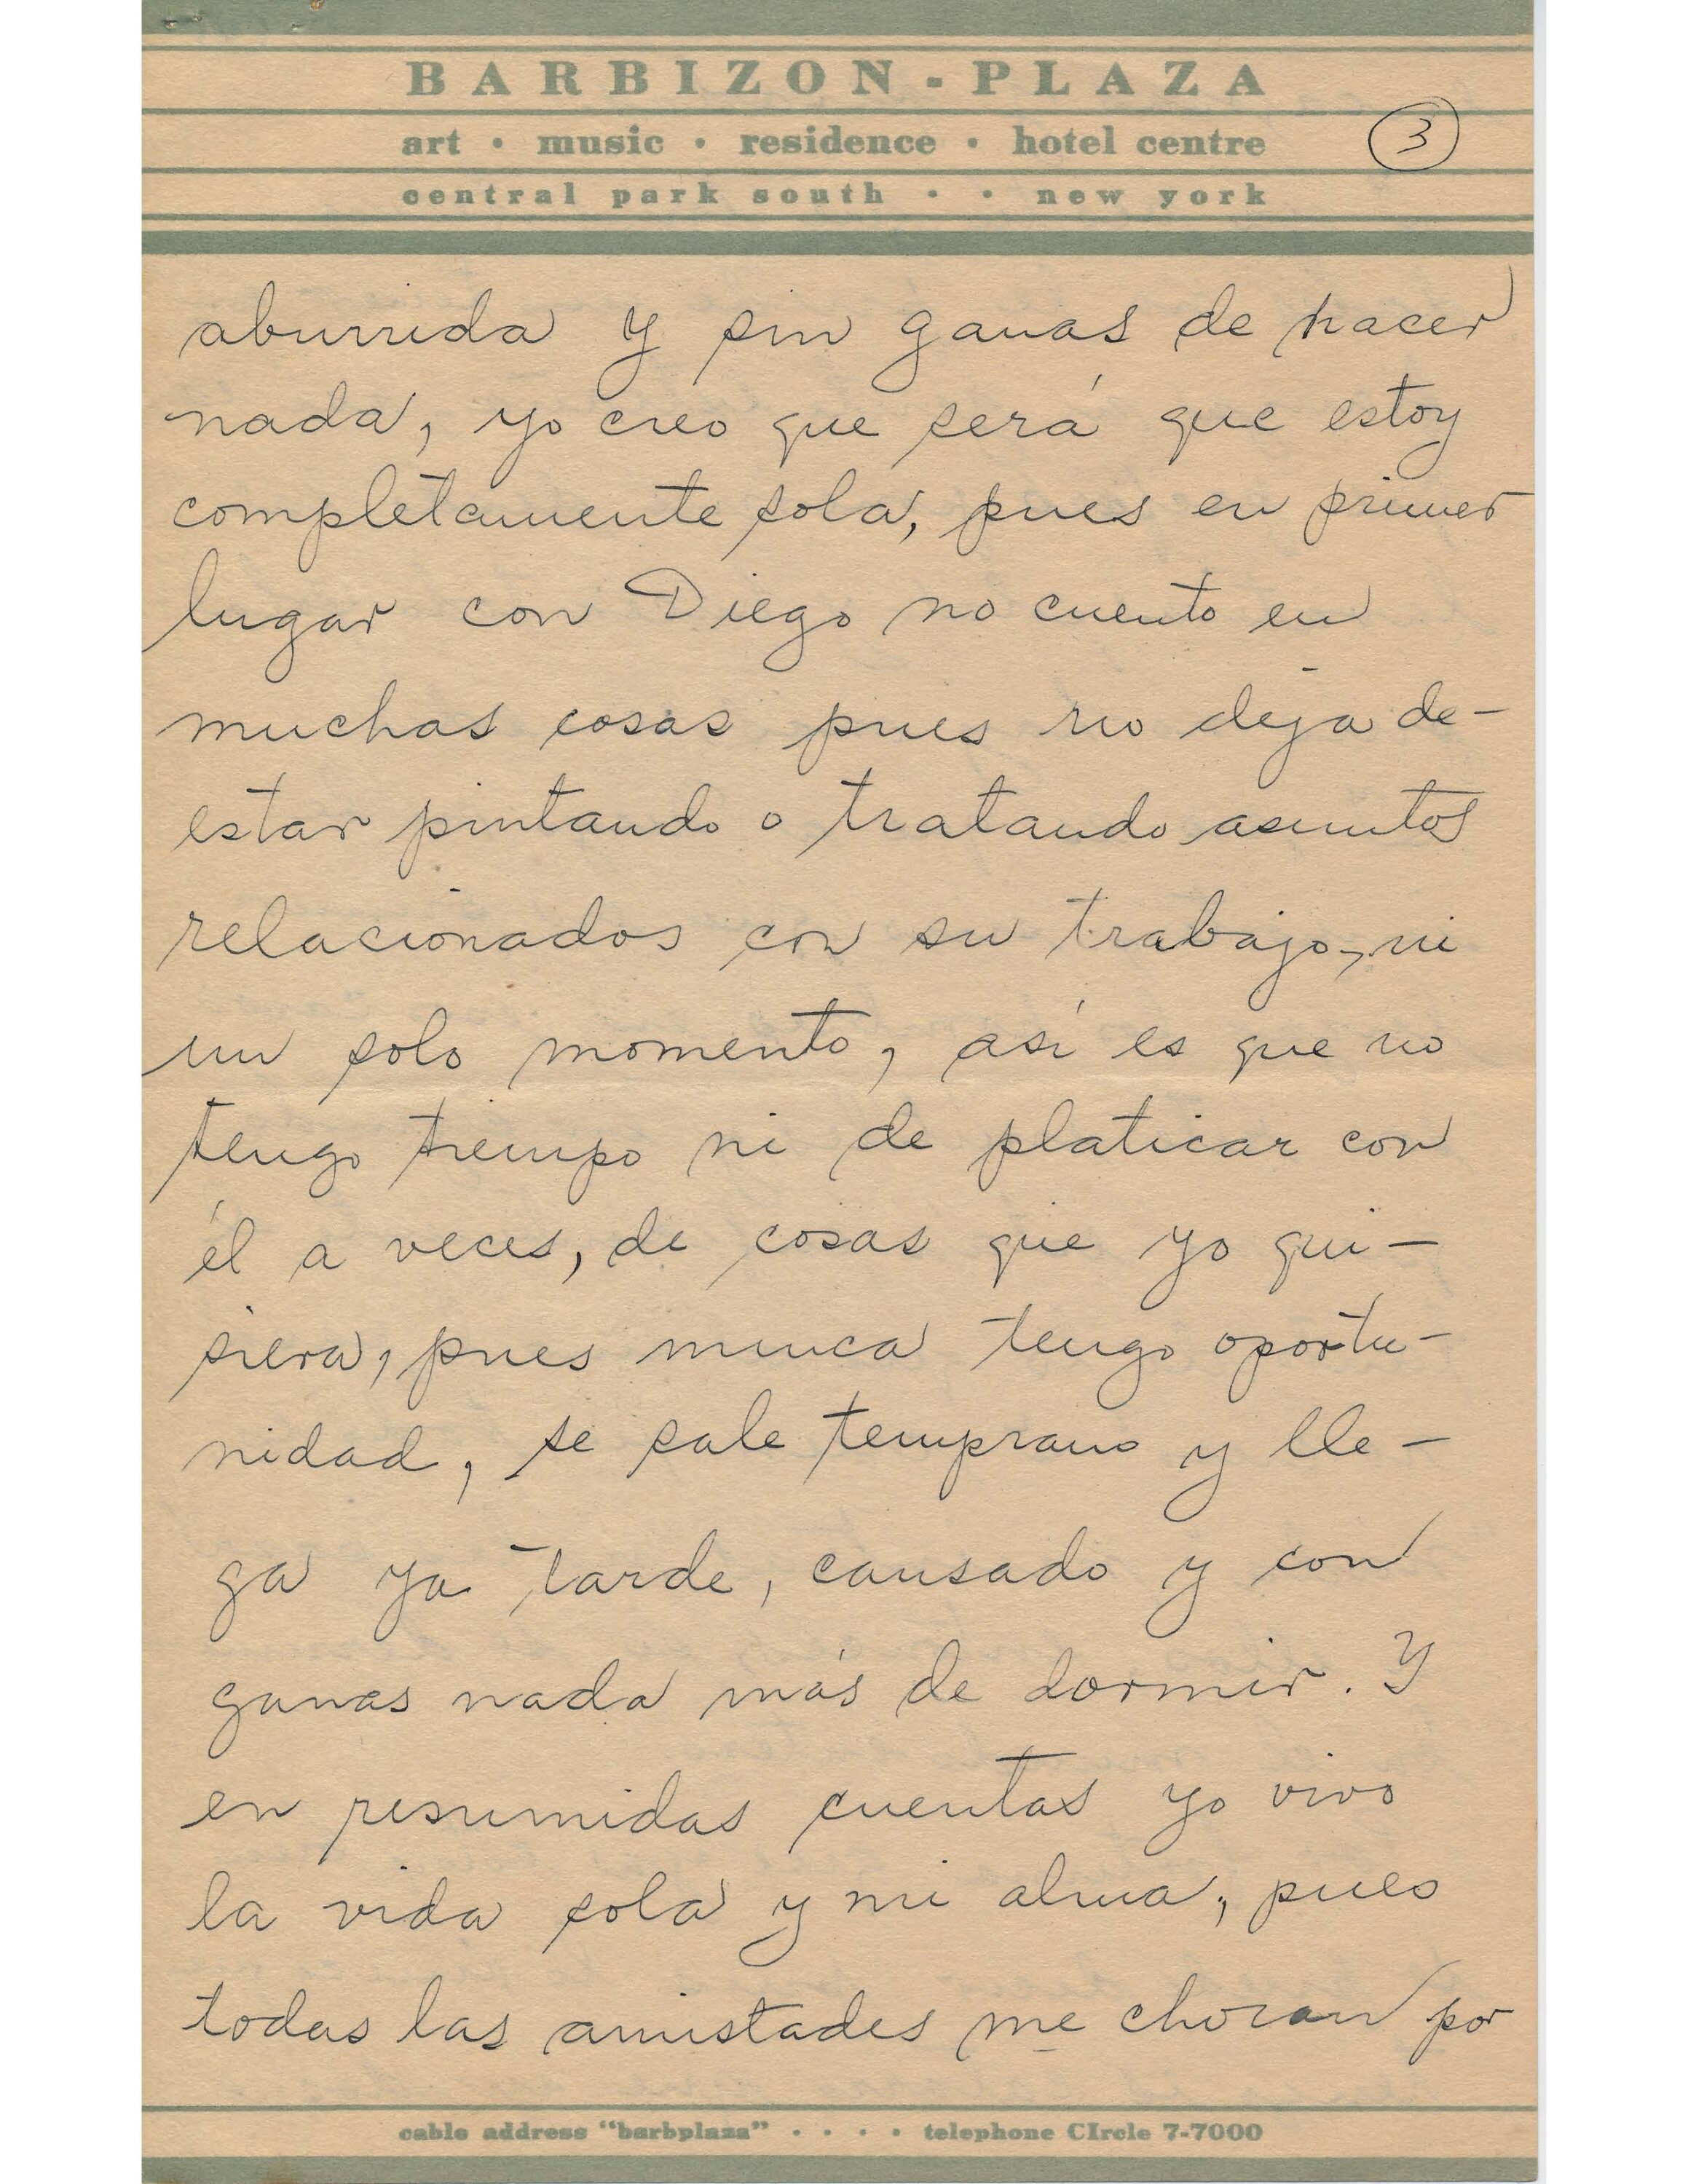 BARBIZON-PLAZA
art • music • residence • hotel centre
3
central park south • • new york
aburrida y sin ganas de hacer
nada, yo creo que será que estoy
completamente sola, pues en primer
lugar con Diego no cuento en
muchas cosas pues no deja de-
estar pintando o tratando asuntos
relacionados con su trabajo, ni
un solo momento, así es que no
tengo tiempo ni de platicar con
él a veces, de cosas que yo qui-
siera, pues nunca tengo oportu-
nidad, se sale temprano y lle-
ga ya tarde, cansado y con
ganas nada más de dormir. Y
en resumidas cuentas yo vivo
la vida sola y mi alma, pues
todas las amistades me chocan por
cable address "barbplaza" • • • • telephone CIrcle 7-7000